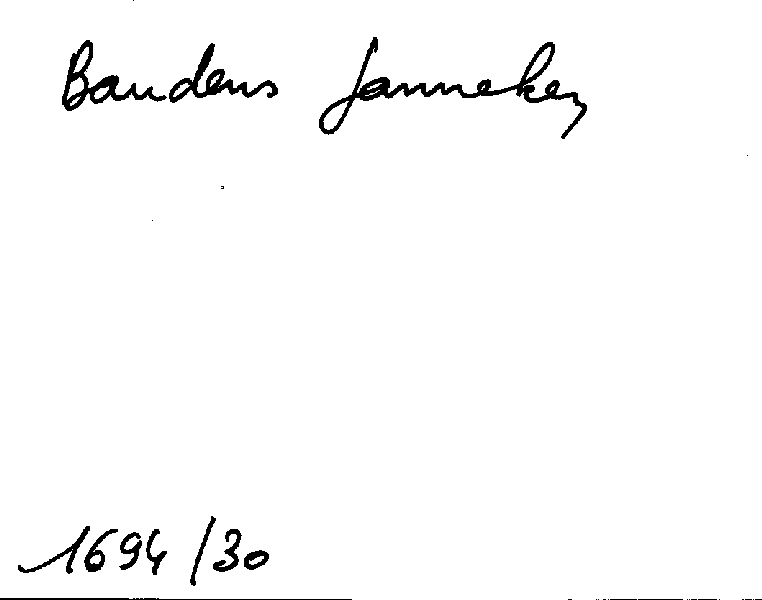 Baudens Janneken
1694/30